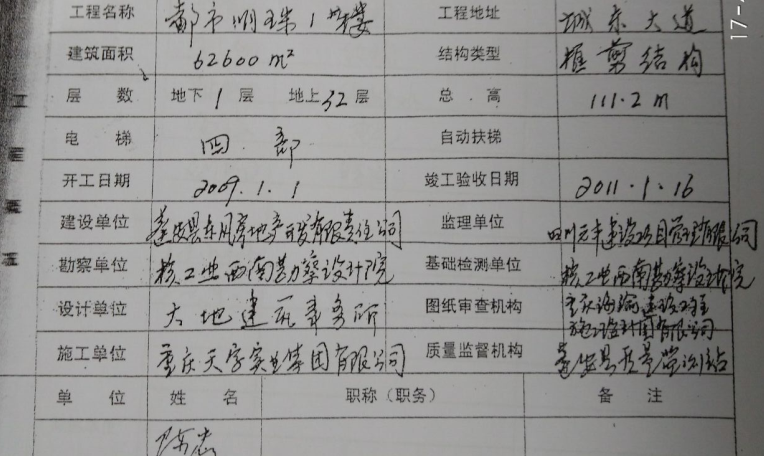 工程名称 都市明珠1号楼 工程地址 城东大道
建筑面积 62600m² 结构类型 框剪结构
层数 地下1层 地上32层 总高 111.2m
电梯 四部 自动扶梯
开工日期 2009.1.1 竣工验收日期 2011.1.16
工程概况
建设单位 东风房地产开发有限责任公司 监理单位 四川元丰建设项目管理有限公司
勘察单位 核工业西南勘察设计院 基础检测单位 核工业西南勘察设计院
设计单位 大地建筑事务所 图纸审查机构 重庆
有限公司
施工单位 重庆天字实业集团有限公司 质量监督机构
单位 姓名 职称（职务） 备注
17-